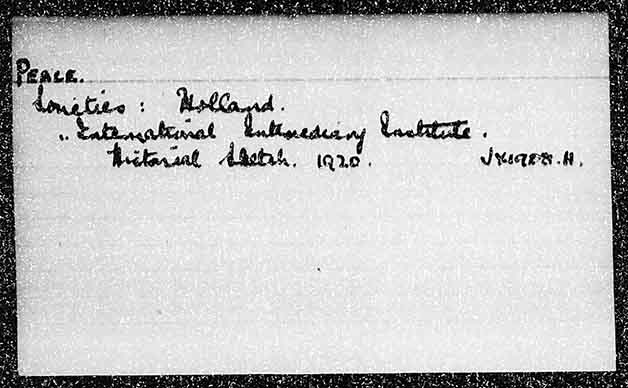 PEACE.
Societies: Holland.
,, International Intermediary Institute.
Historical Sketch. 1920.